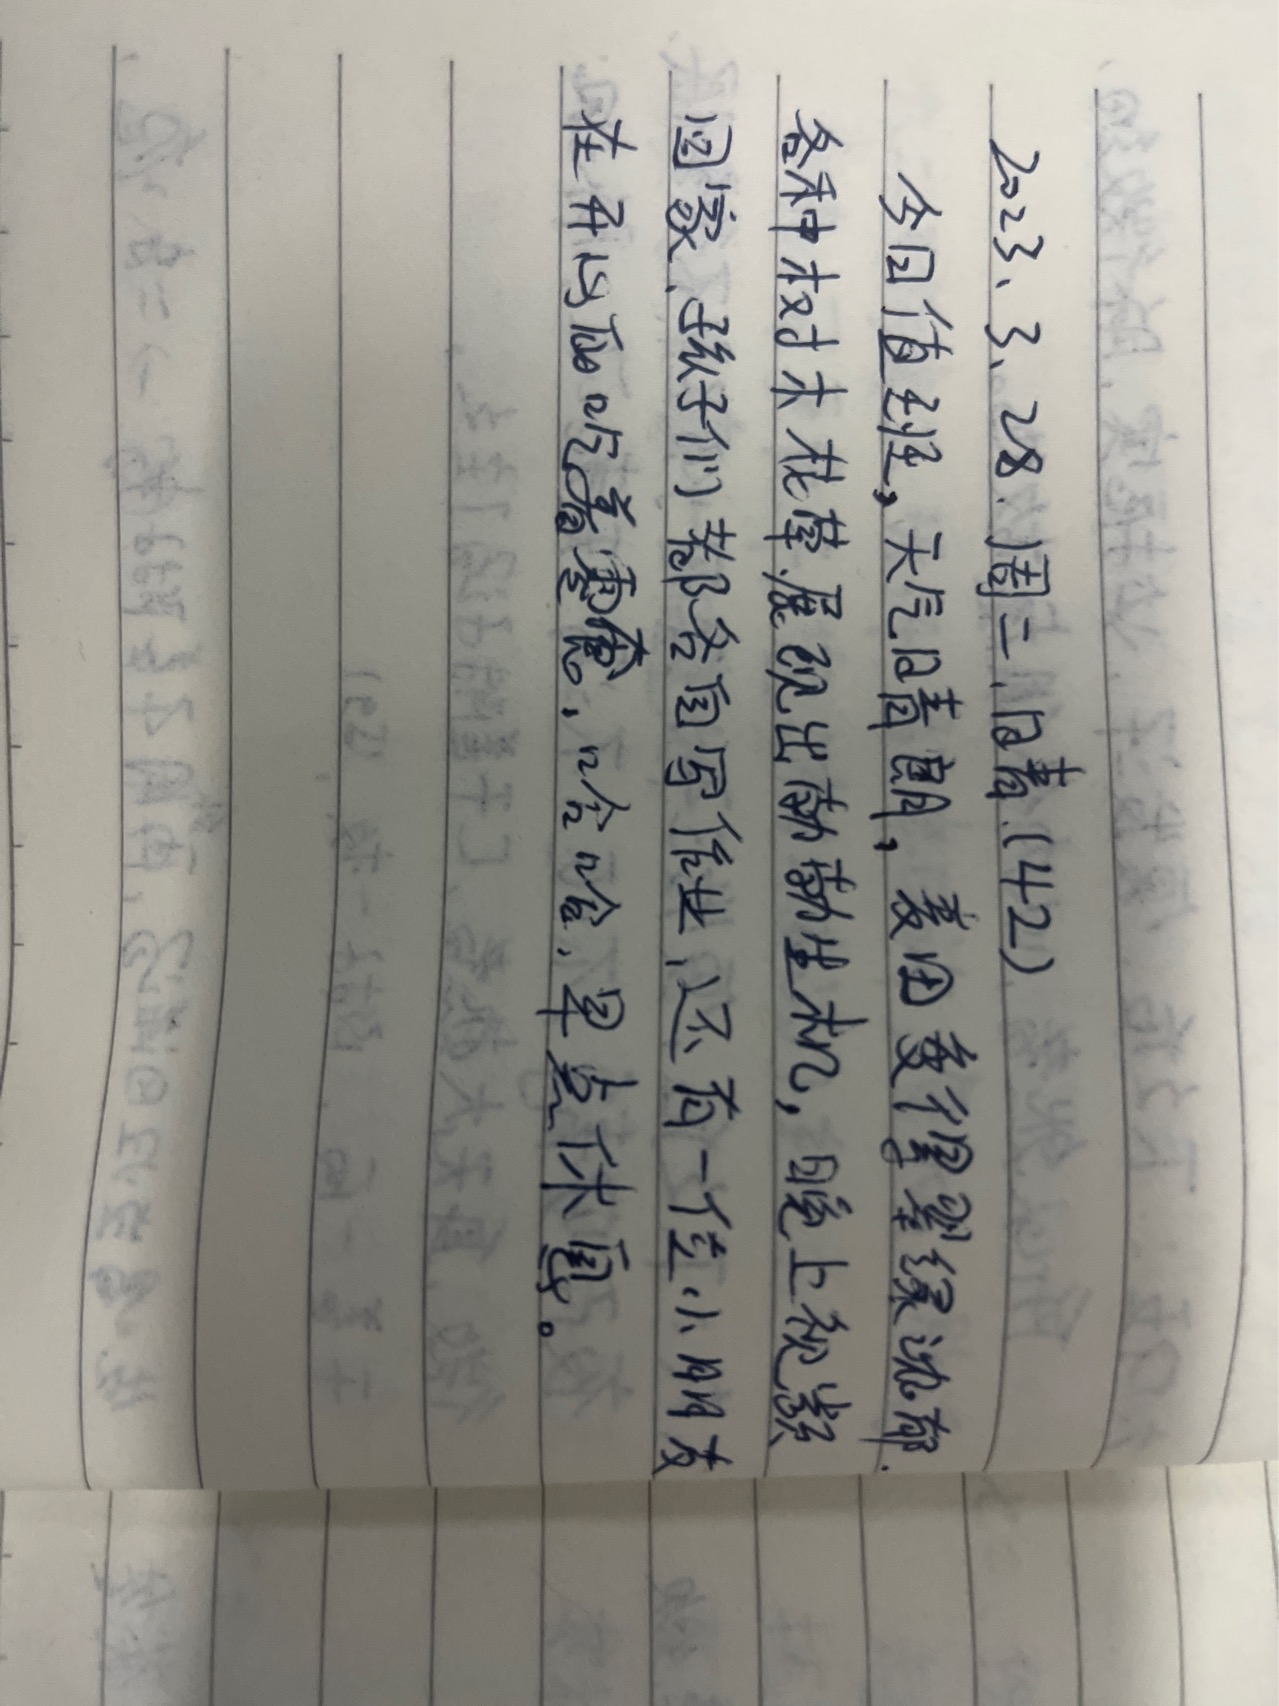 2023、3、28.周二.晴.(42)
今日值班，天气晴朗，麦田变得翠绿浓郁.
各种树木花草.展现出勃勃生机，晚上视频
回家.孩子们都各自写作业、还有一位小朋友
在开心的吃着零食。哈哈.早点休息。